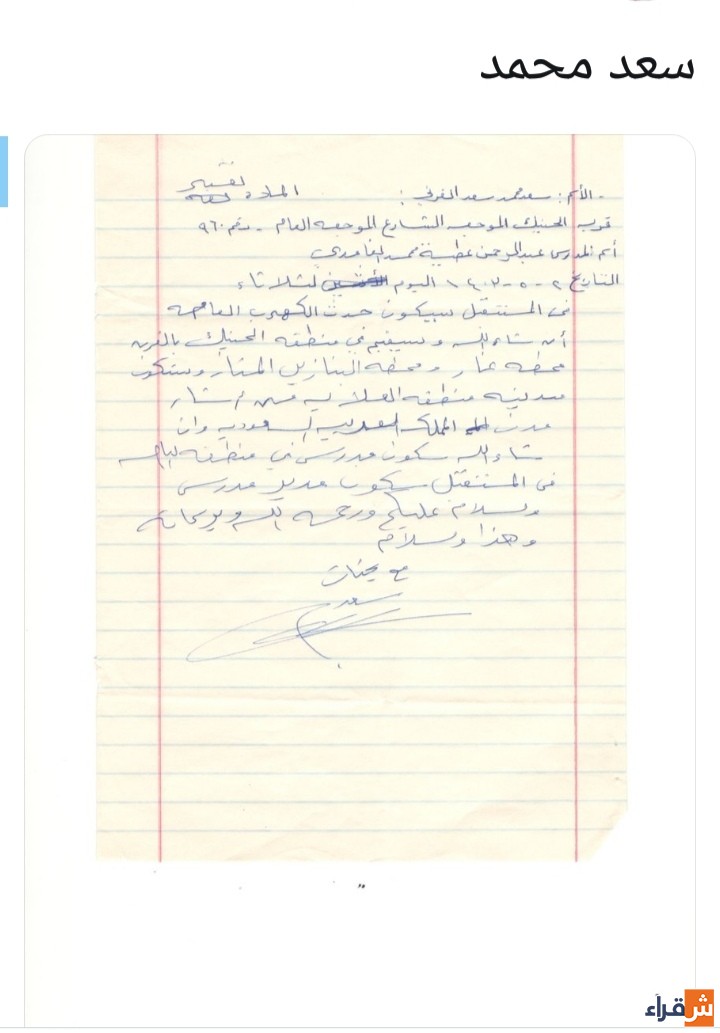 سعد محمد
تعبير
- الأسم: سعد محمد سعد القرني : المادة
قرب الحنيك الموحه الشارع الموحه العام - رقم ٩٦٠
أسم المدرس عبدالرحمن عطية محمد الغامدي
التاريخ ٢ - ٥ - ١٤٠٣ اليوم لثلاثاء
في المستقبل سيكون حدث الكهرب
أن شاء الله وسيقيم في منطقه الحنيك بالقرن
محطه عمار ومحطه البنازين الممتاز وستكون
مدينه منطقه العلايه من
مدن المملكه العربيه السعوديه وان
شاء الله سكون مدرس في منطقه
في المستقبل سكون مدير مدرس
وسلام عليكم ورحمه الله وبركاته
وهذا وسلام
مع تحيات
سعد
شقراء